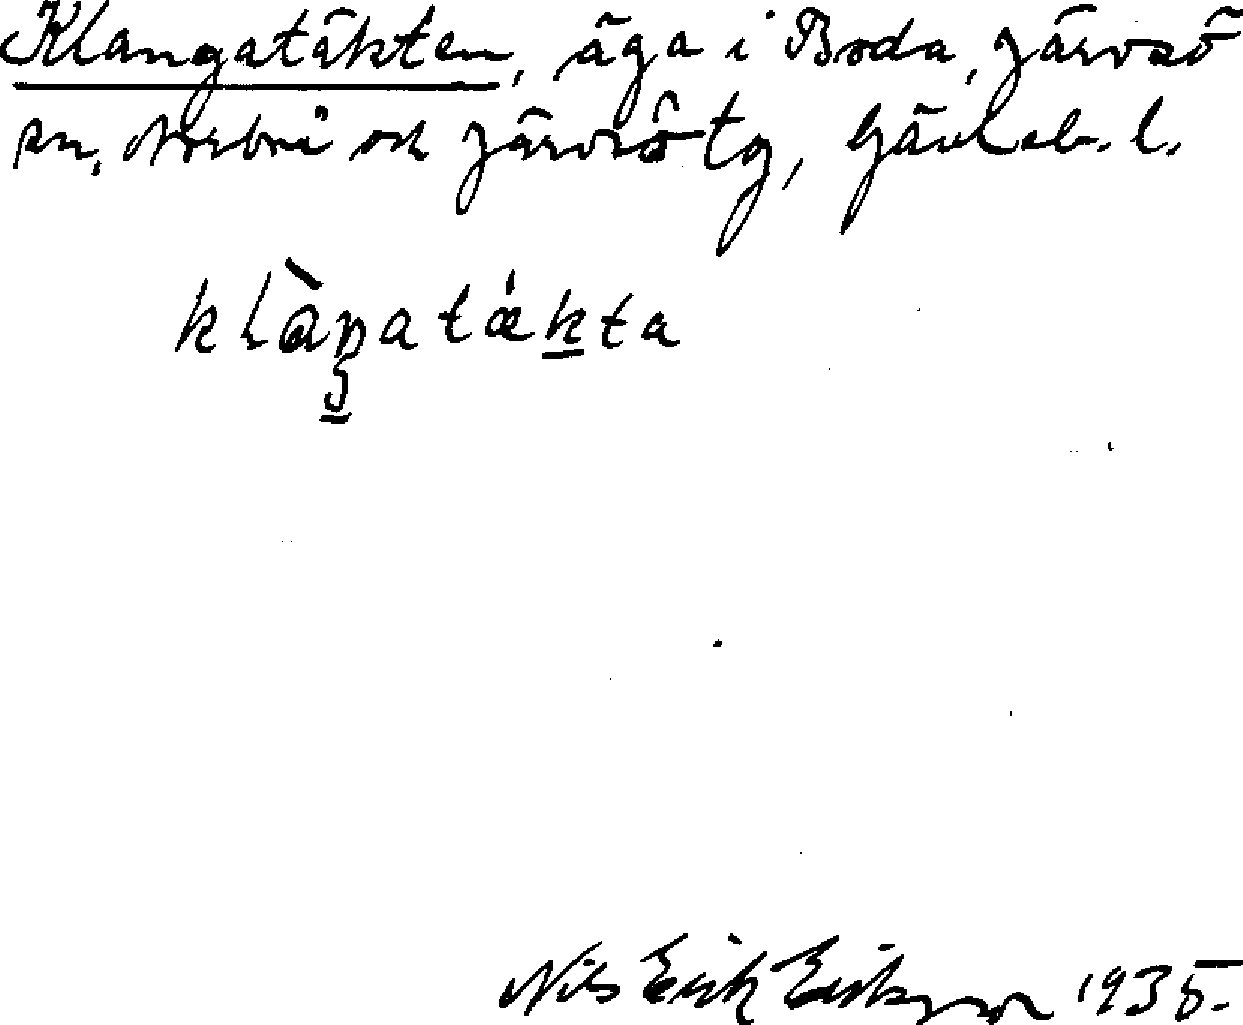 Klangatäkten, äga i Boda, Järvsö
sn, Arbrå och Järvsö tg, Gävleb. l.
klàŋatǽkta
Nils Erik Eriksson 1935.